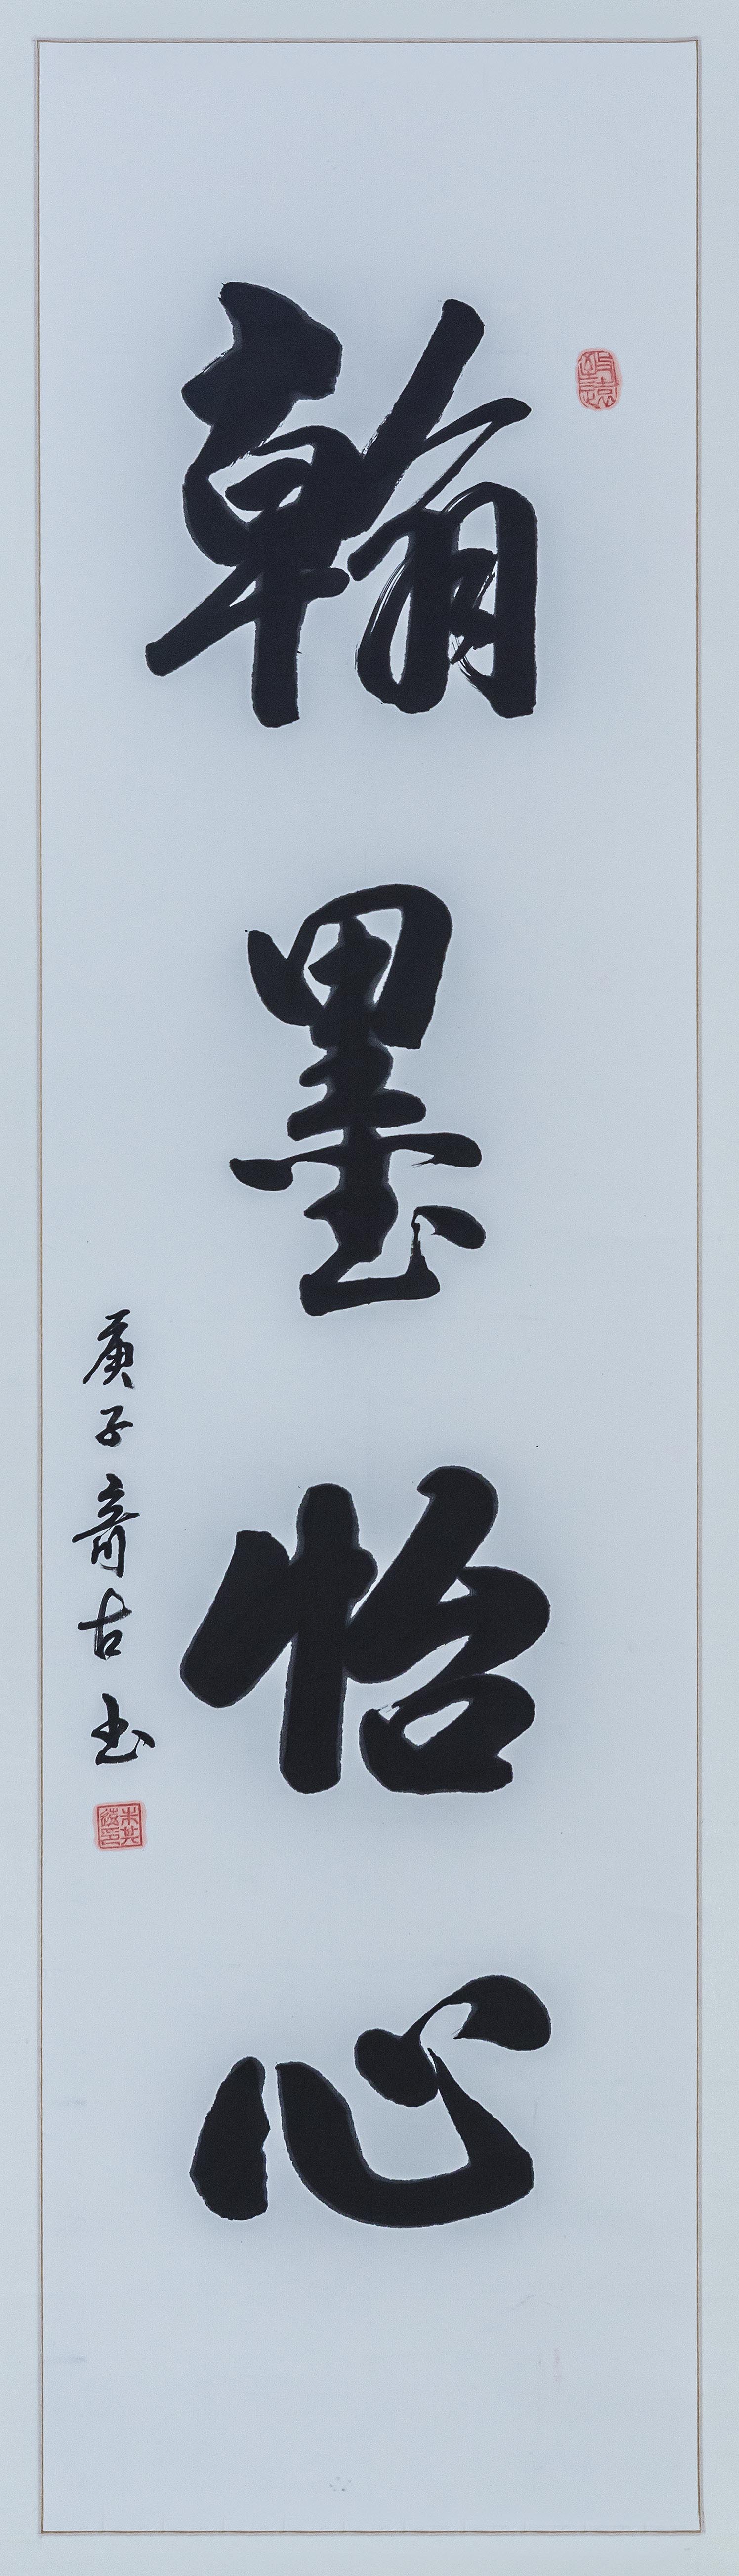 翰墨怡心
庚子奇古书